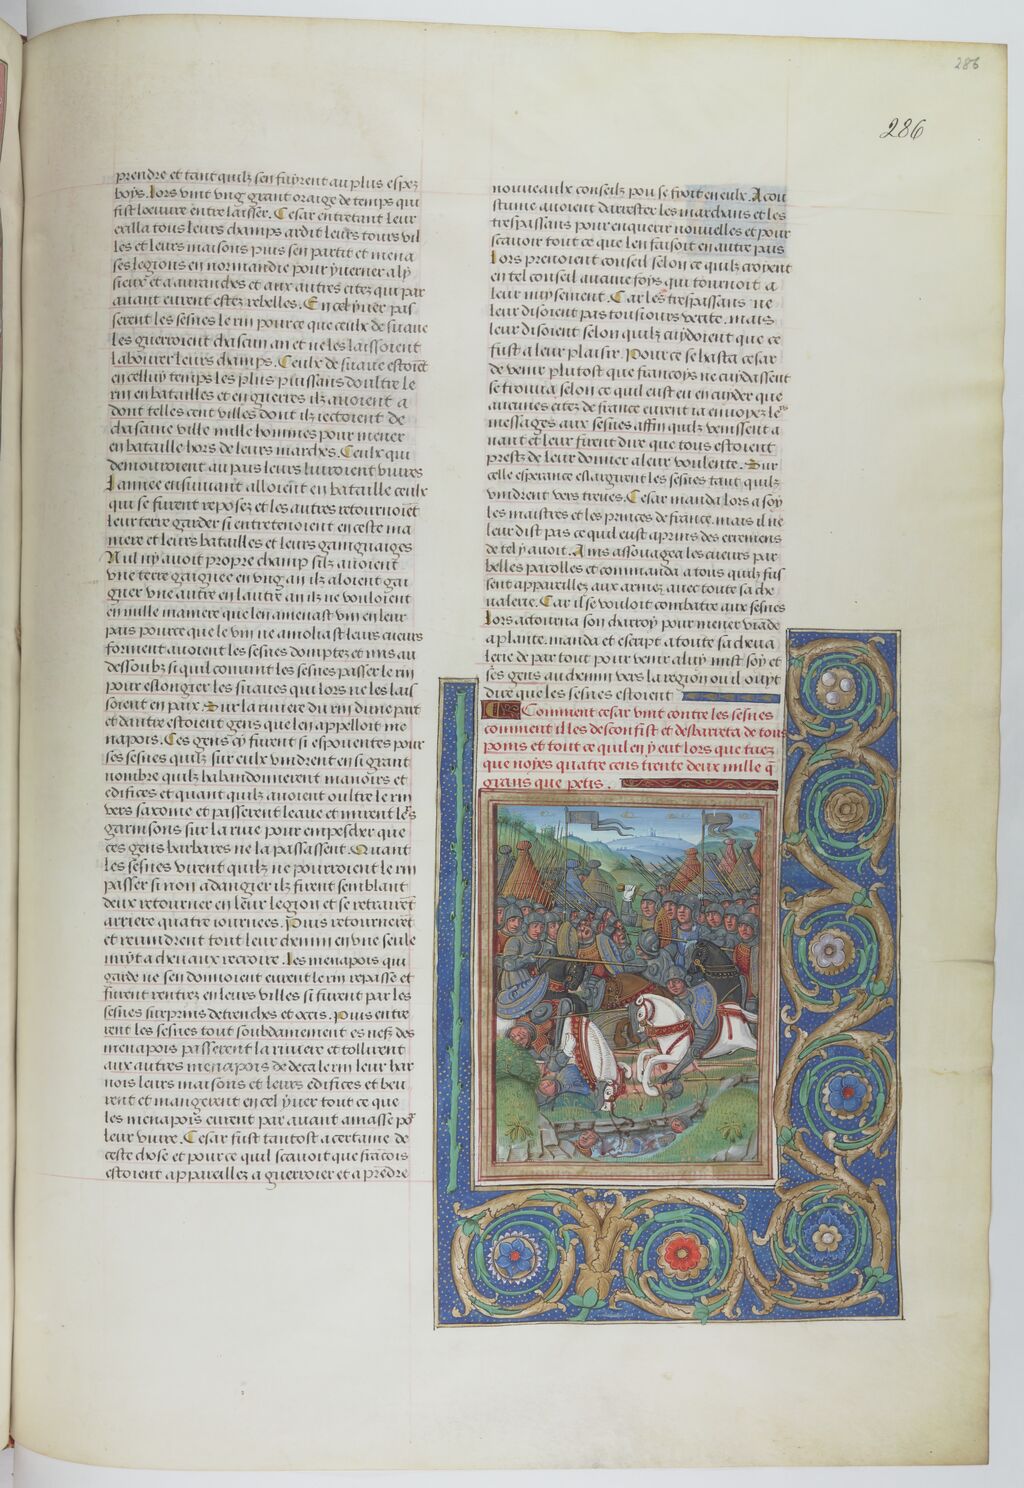 286
286
prendre et tant quilz sen fuyrent au plus espez
boys. Lors vint vng grant oraige de temps qui
fist loeuure entrelaisser. Cesar entretant leur
exilla tous leurs champs ardit leurs tours vil
les et leurs maisons puis sen partit et mena
ses legions en normandie pour yuerner a ly
sieux et a auranches et aux autres citez qui par
auant eurent estez rebelles. En cel yuer pas
serent les sesnes le rin pource que ceulx de suaue
les guerroient chascun an et ne les laissoient
labourer leurs champs. Ceulx de suaue estoiẽt
en celluy temps les plus puissans doultre le
rin en batailles et en guerres ilz auoient a
dont telles cent villes dont ilz iectoient de
chascune ville mille hommes pour mener
en bataille hors de leurs marches. Ceulx qui
demouroient au pais leurs liuroient viures
Lannee ensuiuant alloient en bataille ceulx
qui se furent reposez et les autres retournoiẽt
leur terre garder si entretenoient en ceste ma
niere et leurs batailles et leurs gaingnaiges
Nul ny auoit propre champ silz auoient
vne terre gaignee en vng an ilz aloient gai
gner vne autre en lautre an ilz ne vouloient
en nulle maniere que len amenast vin en leur
pais pource que le vin ne amoliast leurs cueurs
forment auoient les sesnes domptez et mis au
dessoubz si quil conuint les sesnes passer le rin
pour eslongier les suaues qui lors ne les lais
soient en paix. Sur la riuiere du rin dune part
et dautre estoient gens que len appelloit me
napois. Ces gens cy furent si espouentes pour
ses sesnes quilz sur eulx vindrent en si grant
nombre quilz habandonnerent manoirs et
edifices et quant quilz auoient oultre le rin
vers saxonie et passerent leaue et mirent leʳs
garnisons sur la riue pour empescher que
ces gens barbares ne la passassent. Quant
les sesnes virent quilz ne pourroient le rin
passer si non a dangier ilz firent semblant
deux retourner en leur legion et se retrairẽt
arriere quatre iournees. Puis retournerẽt
et reuindrent tout leur chemin en vne seule
nuyt a cheuaux rectoire. Les menapois qui
garde ne sen donnoient eurent le rin repasse et
furent rentrez en leurs villes si furent par les
sesnes surprins detrenches et occis. Puis entre
rent les sesnes tout soubdainement es nefz des
menapois passerent la riuiere et tollirent
aux autres menapois de deca le rin leur har
nois leurs maisons et leurs edifices et beu
rent et mangerent en cel yuer tout ce que
les menapois eurent par auant amasse poʳ
leur viure. Cesar fust tantost acertaine de
ceste chose et pource quil scauoit que francois
estoient appareillez a guerroier et a prẽdre
nouueaulx conseilz pou se fioit en eulx. A cou
stume auoient darrester les marchans et les
trespassans pour enquerir nouuelles et pour
scauoir tout ce que len faisoit en autre pais
Lors prenoient conseil selon ce quilz croyent
en tel conseil aucune foys qui tournoit a
leur nuysement. Car les trespassans ne
leur disoient pas tousiours verite. mais
leur disoient selon quilz cuydoient que ce
fust a leur plaisir. Pource se hasta cesar
de venir plutost que francoys ne cuydassent
se trouua selon ce quil eust eu en cuyder que
aucunes citez de france eurent ia enuoyez leʳˢ
messages aux sesnes affin quilz venissent a
uant et leur firent dire que tous estoient
prestz de leur donner a leur voulente. Sur
celle esperance eslargirent les sesnes tant quilz
vindrent vers treues. Cesar manda lors a soy
les maistres et les princes de france. mais il ne
leur dist pas ce quil eust aprins des erremens
de tel y auoit. Ains assouagea les cueurs par
belles parolles et commanda a tous quilz fus
sent appareillez aux armez auec toute sa che
ualerie. Car il se vouloit combatre aux sesnes
Lors actourna son charroy pour mener viāde
a plante. manda et escript a toute sa cheua
lerie de par tout pour venir a luy mist soy et
ses gens au chemin vers la region ou il ouyt
dire que les sesnes estoient
Comment cesar vint contre les sesnes
comment il les desconfist et desbarreta de tous
poins et tout ce quil en y eut lors que tuez
que noyes quatre cens trente deux mille q̃
grans que petis.